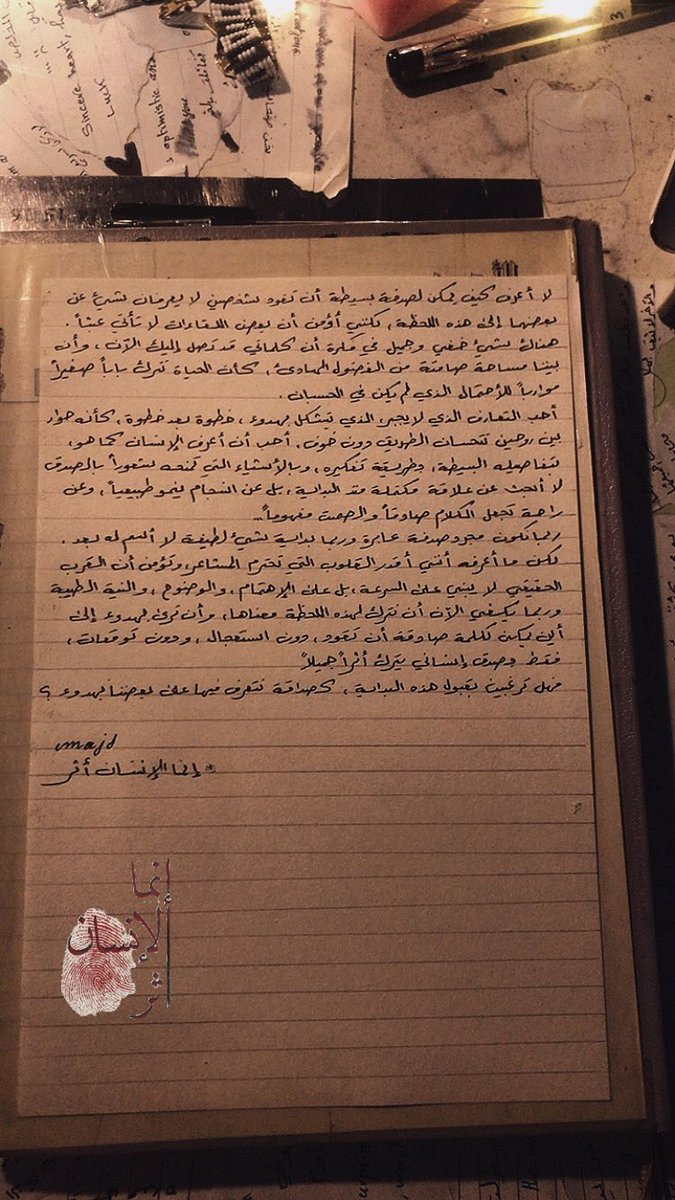 sincere heart,
Luck
optimistic and
your
3
لا أعرف كيف يمكن لصدفة بسيطة أن تقود شخصين لا يعرفان شيئ عن
بعضهما إلى هذه اللحظة، لكنني أؤمن أن بعض اللقاءات لا تأتي عبثاً.
هناك شيئ خفي وجميل في فكرة أن كلماتي قد تصل إليك الآن، وأن
بيننا مساحة صامتة من الفضول الهادئ، كأن الحياة تترك باباً صغيراً
موارباً للأحتمال الذي لم يكن في الحسبان.
أحب التعارف الذي لا يجبر، الذي يتشكل بهدوء، خطوة بعد خطوة، كأنه حوار
بين روحين تتحسسان الطريق دون خوف. أحب أن أعرف الإنسان كما هو،
بتفاصيله البسيطة، وطريقة تفكيره، وبالأشياء التي تمنحه شعوراً بالصدق
لا أبحث عن علاقة مكتملة منذ البداية، بل عن انسجام ينمو طبيعياً، وعن
راحة تجعل الكلام صادقاً والصمت مفهوماً...
ربما تكون مجرد صدفة عابرة وربما بداية لشيئ لطيف لا أسم له بعد.
لكن ما أعرفه أنني أقدر القلوب التي تحترم المشاعر، وتؤمن أن القرب
الحقيقي لا يبنى على السرعة، بل على الإهتمام، والوضوح، والنية الطيبة
وربما يكفي الآن أن نترك لهذه اللحظة معناها، وأن نرى بهدوء إلى
أين يمكن لكلمة صادقة أن تقود، دون استعجال، ودون توقعات،
فقط بصدق إنساني يترك أثراً جميلاً
فهل ترغبين بقبول هذه البداية، كصداقة نتعرف فيها على بعضنا بهدوء ؟
majd
إنما الإنسان أثر
إنما
الإنسان
أثر